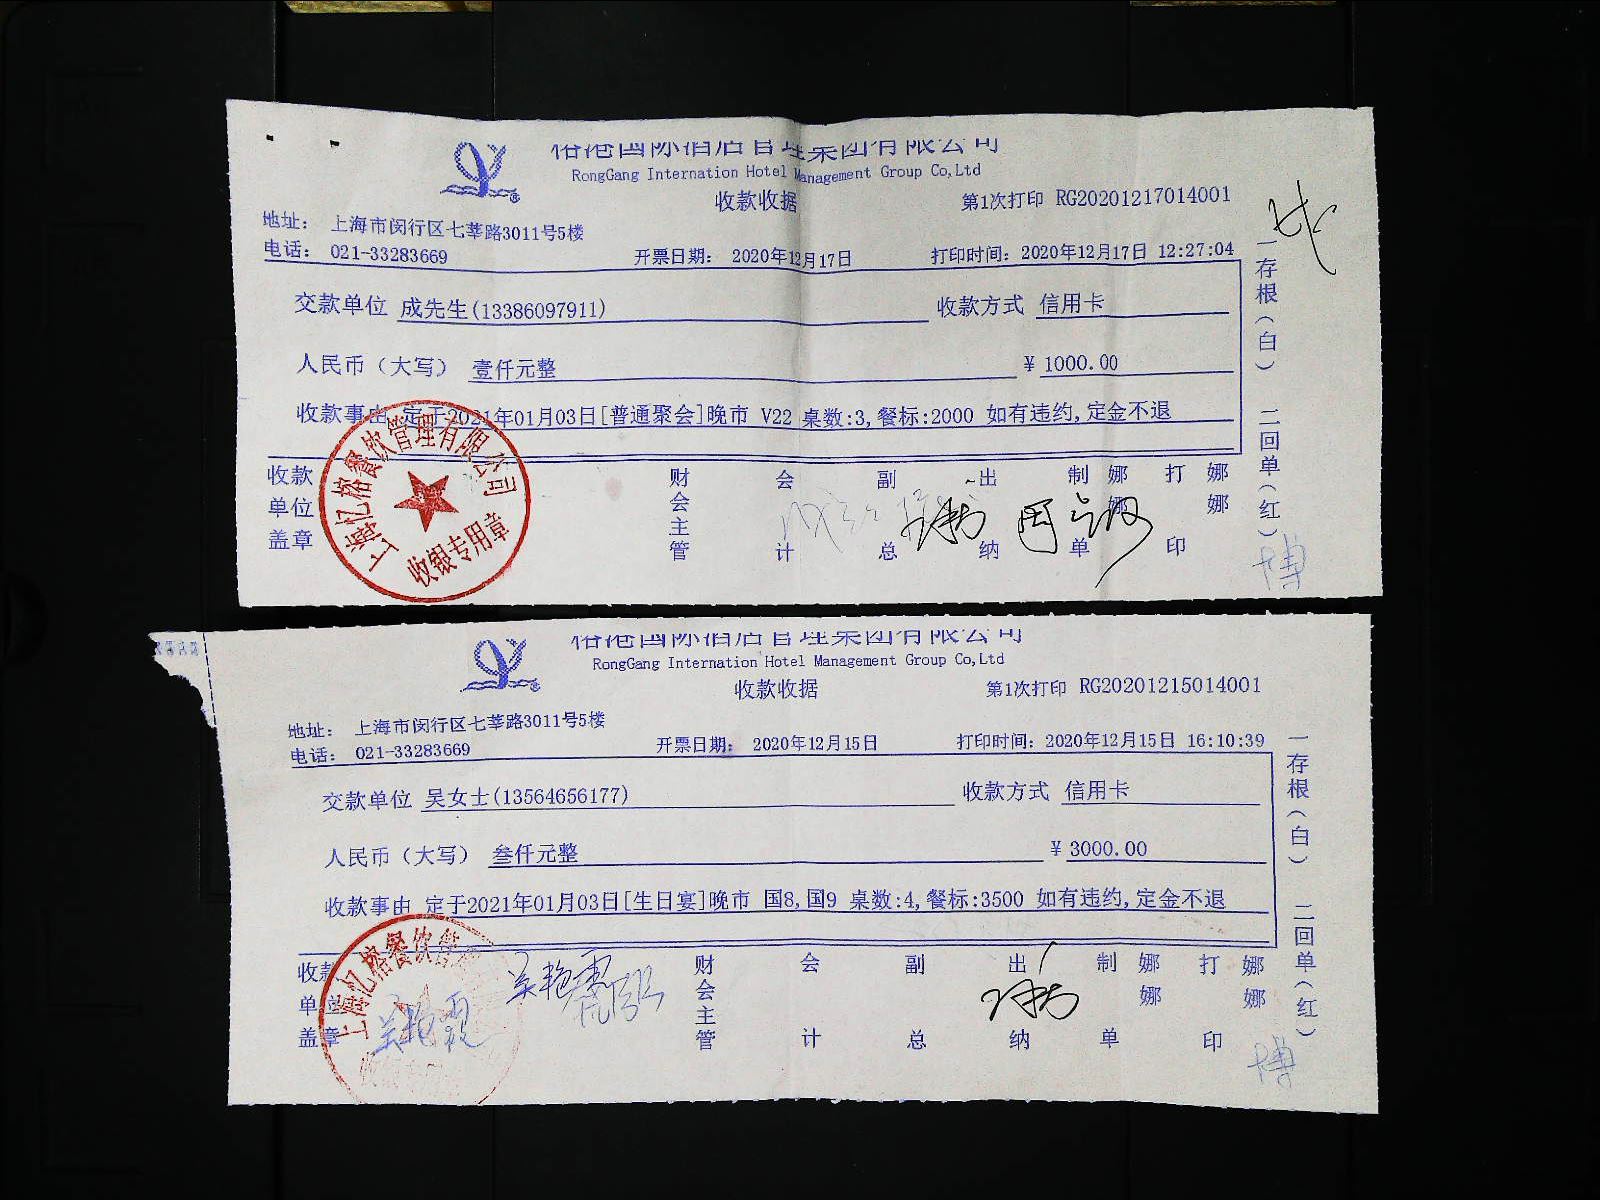 榕港国际酒店管理集团有限公司
RongGang Internation Hotel Management Group Co,Ltd
收款收据
第1次打印 RG20201217014001
地址： 上海市闵行区七莘路3011号5楼
电话： 021-33283669 开票日期： 2020年12月17日 打印时间：2020年12月17日 12:27:04
交款单位 成先生(13386097911) 收款方式 信用卡
人民币（大写） 壹仟元整 ¥1000.00
收款事由 定于2021年01月03日[普通聚会]晚市 V22 桌数:3,餐标:2000 如有违约,定金不退
收款单位盖章 财会主管 会计 副总 出纳 制单 娜娜 打印 娜娜
一存根（白） 二回单（红）
上海忆榕餐饮管理有限公司
收银专用章
博
榕港国际酒店管理集团有限公司
RongGang Internation Hotel Management Group Co,Ltd
收款收据
第1次打印 RG20201215014001
地址： 上海市闵行区七莘路3011号5楼
电话： 021-33283669 开票日期： 2020年12月15日 打印时间：2020年12月15日 16:10:39
交款单位 吴女士(13564656177) 收款方式 信用卡
人民币（大写） 叁仟元整 ¥3000.00
收款事由 定于2021年01月03日[生日宴]晚市 国8,国9 桌数:4,餐标:3500 如有违约,定金不退
收款单位盖章 财会主管 会计 副总 出纳 制单 娜娜 打印 娜娜
一存根（白） 二回单（红）
上海忆榕餐饮管
吴艳霞
吴艳霞
博